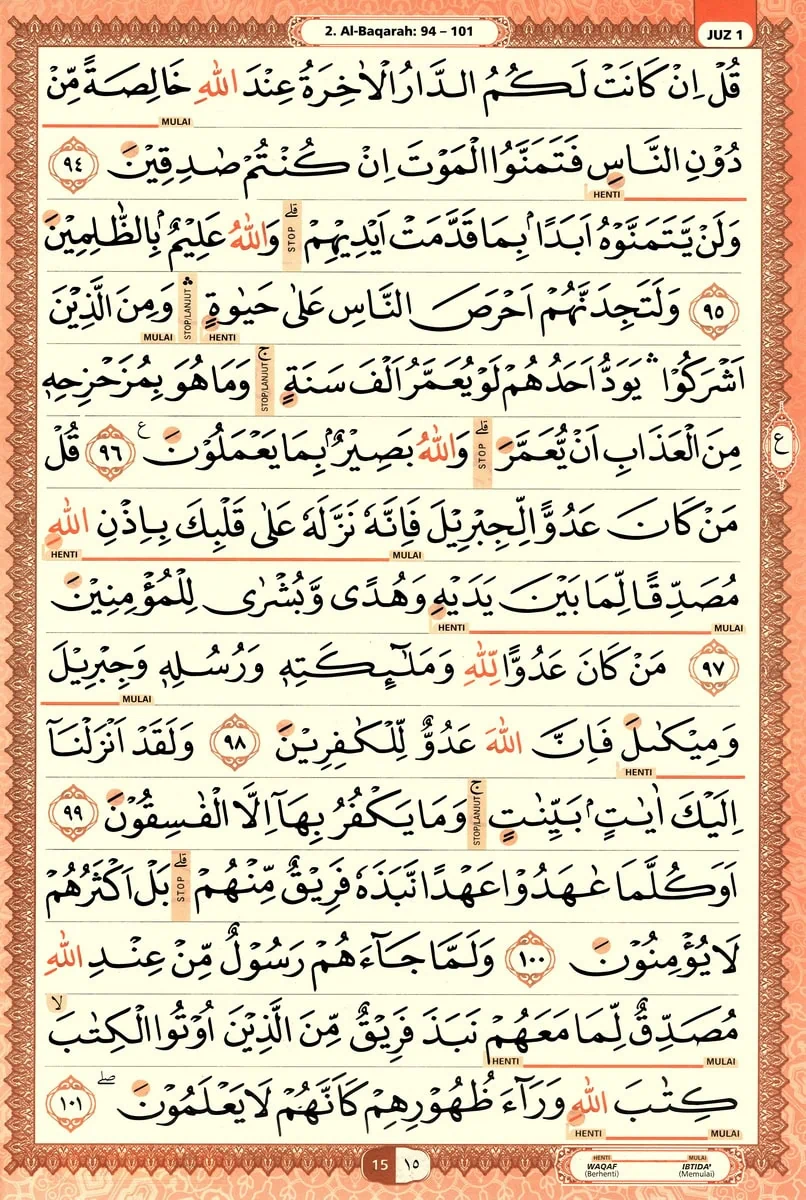 2. Al-Baqarah: 94 – 101
JUZ 1
قُلْ اِنْ كَانَتْ لَكُمُ الدَّارُ الْاٰخِرَةُ عِنْدَ اللّٰهِ خَالِصَةً مِّنْ
MULAI
دُوْنِ النَّاسِ فَتَمَنَّوُا الْمَوْتَ اِنْ كُنْتُمْ صٰدِقِيْنَ ٩٤
HENTI
وَلَنْ يَّتَمَنَّوْهُ اَبَدًاۢ بِمَا قَدَّمَتْ اَيْدِيْهِمْ ۗ STOP وَاللّٰهُ عَلِيْمٌۢ بِالظّٰلِمِيْنَ
٩٥ وَلَتَجِدَنَّهُمْ اَحْرَصَ النَّاسِ عَلٰى حَيٰوةٍ ۛ STOP/LANJUT وَمِنَ الَّذِيْنَ
HENTI MULAI
اَشْرَكُوْا ۛ يَوَدُّ اَحَدُهُمْ لَوْ يُعَمَّرُ اَلْفَ سَنَةٍ ۚ STOP/LANJUT وَمَا هُوَ بِمُزَحْزِحِهٖ
مِنَ الْعَذَابِ اَنْ يُّعَمَّرَ ۗ STOP وَاللّٰهُ بَصِيْرٌۢ بِمَا يَعْمَلُوْنَ ع ٩٦ قُلْ
ع
مَنْ كَانَ عَدُوًّا لِّجِبْرِيْلَ فَاِنَّهٗ نَزَّلَهٗ عَلٰى قَلْبِكَ بِاِذْنِ اللّٰهِ
MULAI HENTI
مُصَدِّقًا لِّمَا بَيْنَ يَدَيْهِ وَهُدًى وَّبُشْرٰى لِلْمُؤْمِنِيْنَ
MULAI HENTI
٩٧ مَنْ كَانَ عَدُوًّا لِّلّٰهِ وَمَلٰۤىِٕكَتِهٖ وَرُسُلِهٖ وَجِبْرِيْلَ
MULAI
وَمِيْكٰىلَ فَاِنَّ اللّٰهَ عَدُوٌّ لِّلْكٰفِرِيْنَ ٩٨ وَلَقَدْ اَنْزَلْنَآ
HENTI
اِلَيْكَ اٰيٰتٍۢ بَيِّنٰتٍ ۚ STOP/LANJUT وَمَا يَكْفُرُ بِهَآ اِلَّا الْفٰسِقُوْنَ ٩٩
اَوَكُلَّمَا عٰهَدُوْا عَهْدًا نَّبَذَهٗ فَرِيْقٌ مِّنْهُمْ ۗ STOP بَلْ اَكْثَرُهُمْ
لَا يُؤْمِنُوْنَ ١٠٠ وَلَمَّا جَاۤءَهُمْ رَسُوْلٌ مِّنْ عِنْدِ اللّٰهِ
مُصَدِّقٌ لِّمَا مَعَهُمْ نَبَذَ فَرِيْقٌ مِّنَ الَّذِيْنَ اُوْتُوا الْكِتٰبَ ۙ
MULAI HENTI
كِتٰبَ اللّٰهِ وَرَاۤءَ ظُهُوْرِهِمْ كَاَنَّهُمْ لَا يَعْلَمُوْنَ ۖ ١٠١
MULAI HENTI
15 ١٥
HENTI MULAI
WAQAF IBTIDA'
(Berhenti) (Memulai)